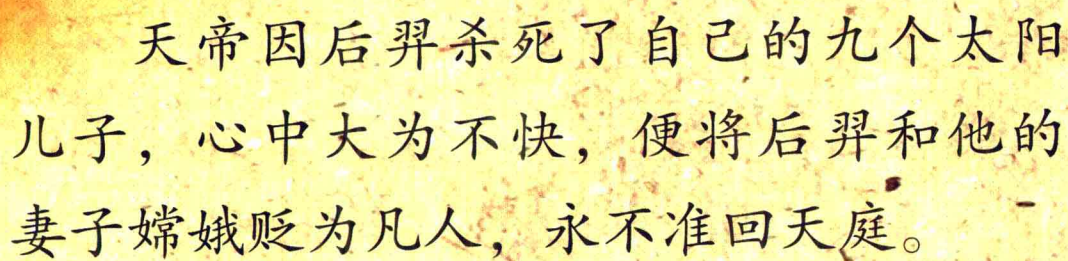 天帝因后羿杀死了自己的九个太阳
儿子，心中大为不快，便将后羿和他的
妻子嫦娥贬为凡人，永不准回天庭。